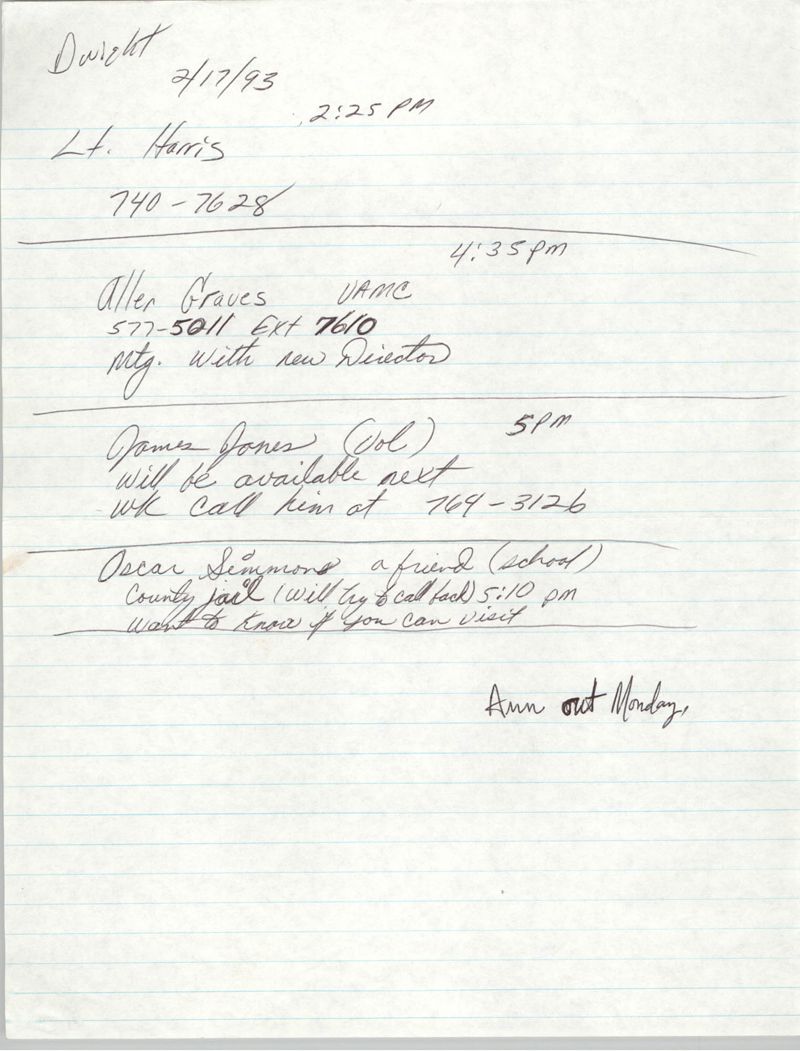 Dwight
2/17/93
2:25 PM
Lt. Harris
740-7628
4:35 pm
Allen Graves VAMC
577-5011 Ext 7610
mtg. with new Director
James Jones (Vol) 5 PM
will be available next
wk call him at 764-3126
Oscar Simmons a friend (school)
County jail (will try to call back) 5:10 pm
want to know if you can visit
Ann out Monday,